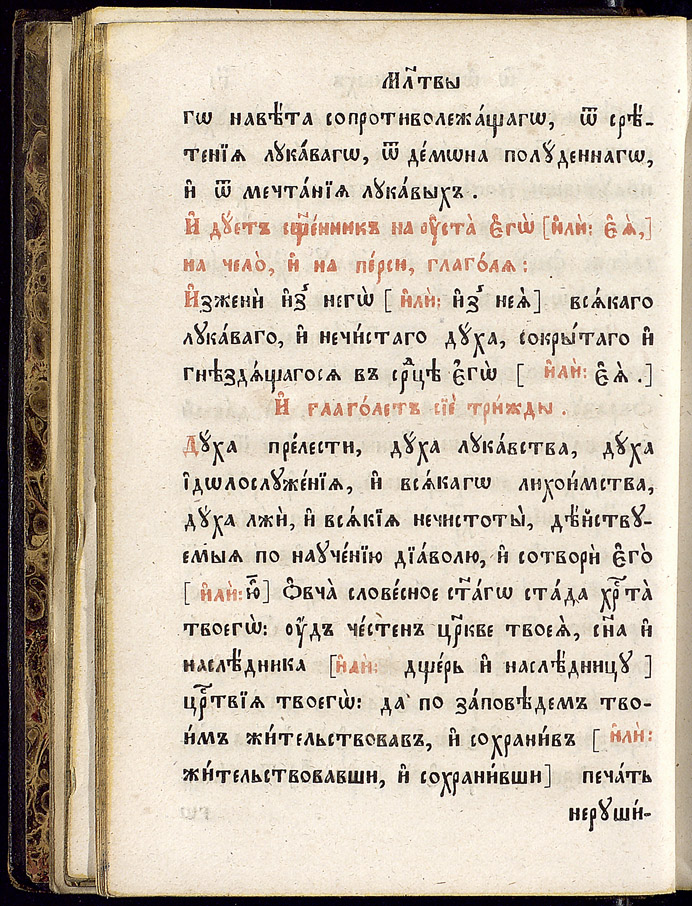 Мл҃твы
гѡ навѣ́та сопротиволежа́щагѡ, ѿ срѣ́-
тенїѧ лꙋка́вагѡ, ѿ де́мѡна полꙋденнагѡ,
и҆ ѿ мечта́нїѧ лꙋка́выхъ .
И҆ дꙋ́етъ сщ҃е́нникъ на оу҆ста̀ є҆гѡ̀ [и҆лѝ: є҆ѧ̀,]
на чело̀, и҆ на пе́рси, глаго́лѧ:
И҆зженѝ и҆з̾ негѡ̀ [и҆лѝ: и҆з̾ неѧ̀] всѧ́каго
лꙋка́ваго, и҆ нечи́стаго дꙋ́ха, сокры́таго и҆
гнѣздѧ́щагосѧ въ срⷣцѣ є҆гѡ̀ [ и҆лѝ: є҆ѧ̀ .]
И҆ глаго́летъ сїѐ три́жды .
Дꙋ́ха пре́лести, дꙋ́ха лꙋка́вства, дꙋ́ха
і҆дѡлослꙋже́нїѧ, и҆ всѧ́кагѡ лихои́мства,
дꙋ́ха лжѝ, и҆ всѧ́кїѧ нечистоты̀, дѣ́йствꙋ-
емыѧ по наꙋче́нїю дїа́волю, и҆ сотворѝ є҆го̀
[ и҆лѝ: ю҆̀] Ѻ҆вча̀ слове́сное ст҃а́гѡ ста́да хрⷭ҇та̀
твоегѡ̀: оу҆́дъ че́стенъ цр҃кве твоеѧ̀, сн҃а и҆
наслѣ́дника [и҆лѝ: дще́рь и҆ наслѣ́дницꙋ ]
црⷭ҇твїѧ твоегѡ̀: да по за́повѣдемъ тво-
и́мъ жи́тельствовавъ, и҆ сохрани́въ [ и҆лѝ:
жи́тельствовавши, и҆ сохрани́вши] печа́ть
нерꙋши́-